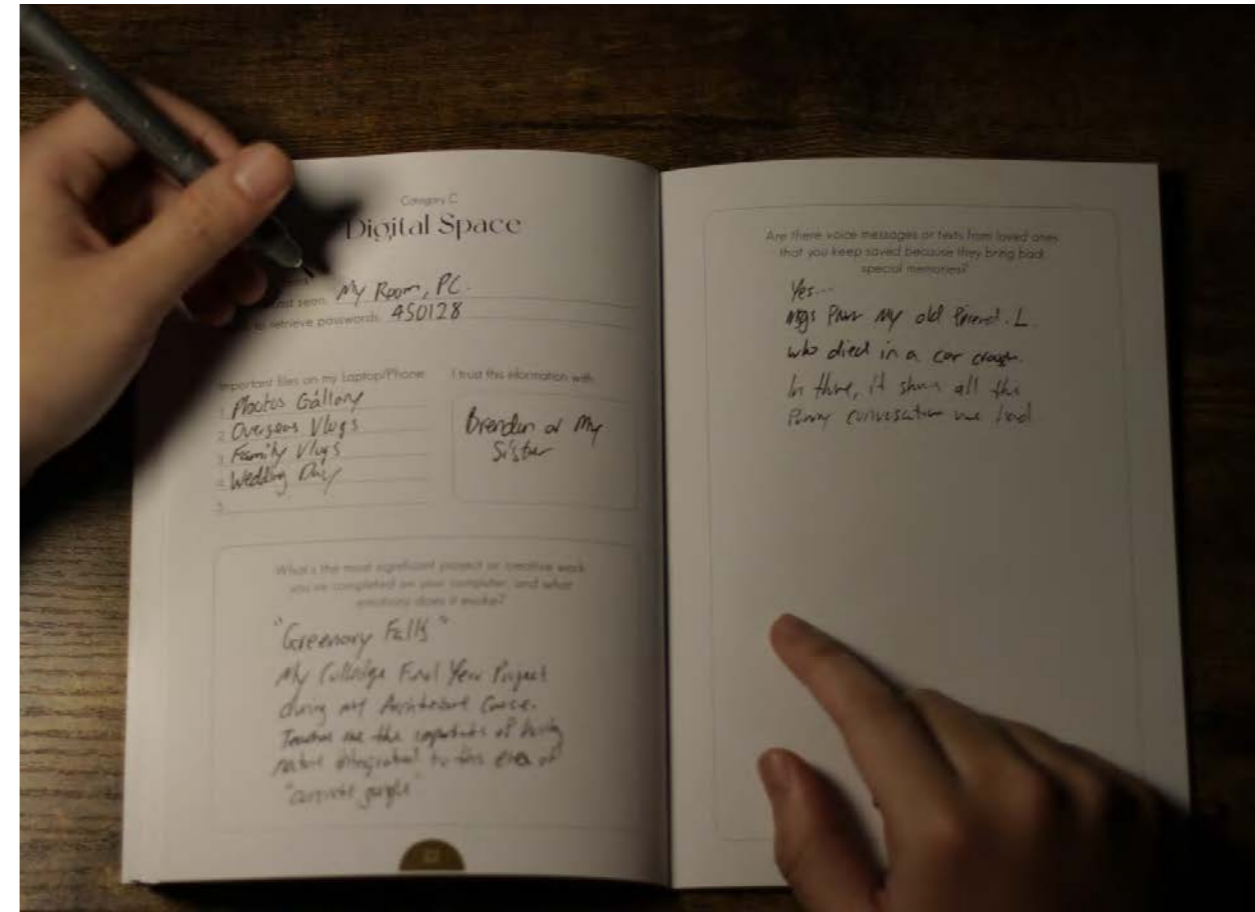 Category C
Digital Space
last seen: My Room, PC.
to retrieve passwords: 450128
Important files on my Laptop/Phone:
1. Photos Gallory
2. Overseas Vlogs
3. Family Vlogs
4. Wedding Day
5.
I trust this information with:
Brendan or My
Sister
What's the most significant project or creative work
you've completed on your computer, and what
emotions does it evoke?
"Greenory Falls"
My Colledge Final Year Project
during my Course.
me the of having
nature to this era of
"concrete jungle"
Are there voice messages or texts from loved ones
that you keep saved because they bring back
special memories?
Yes...
msgs from My old friend. L.
who died in a car crash.
In there, it shows all the
funny conversation we had